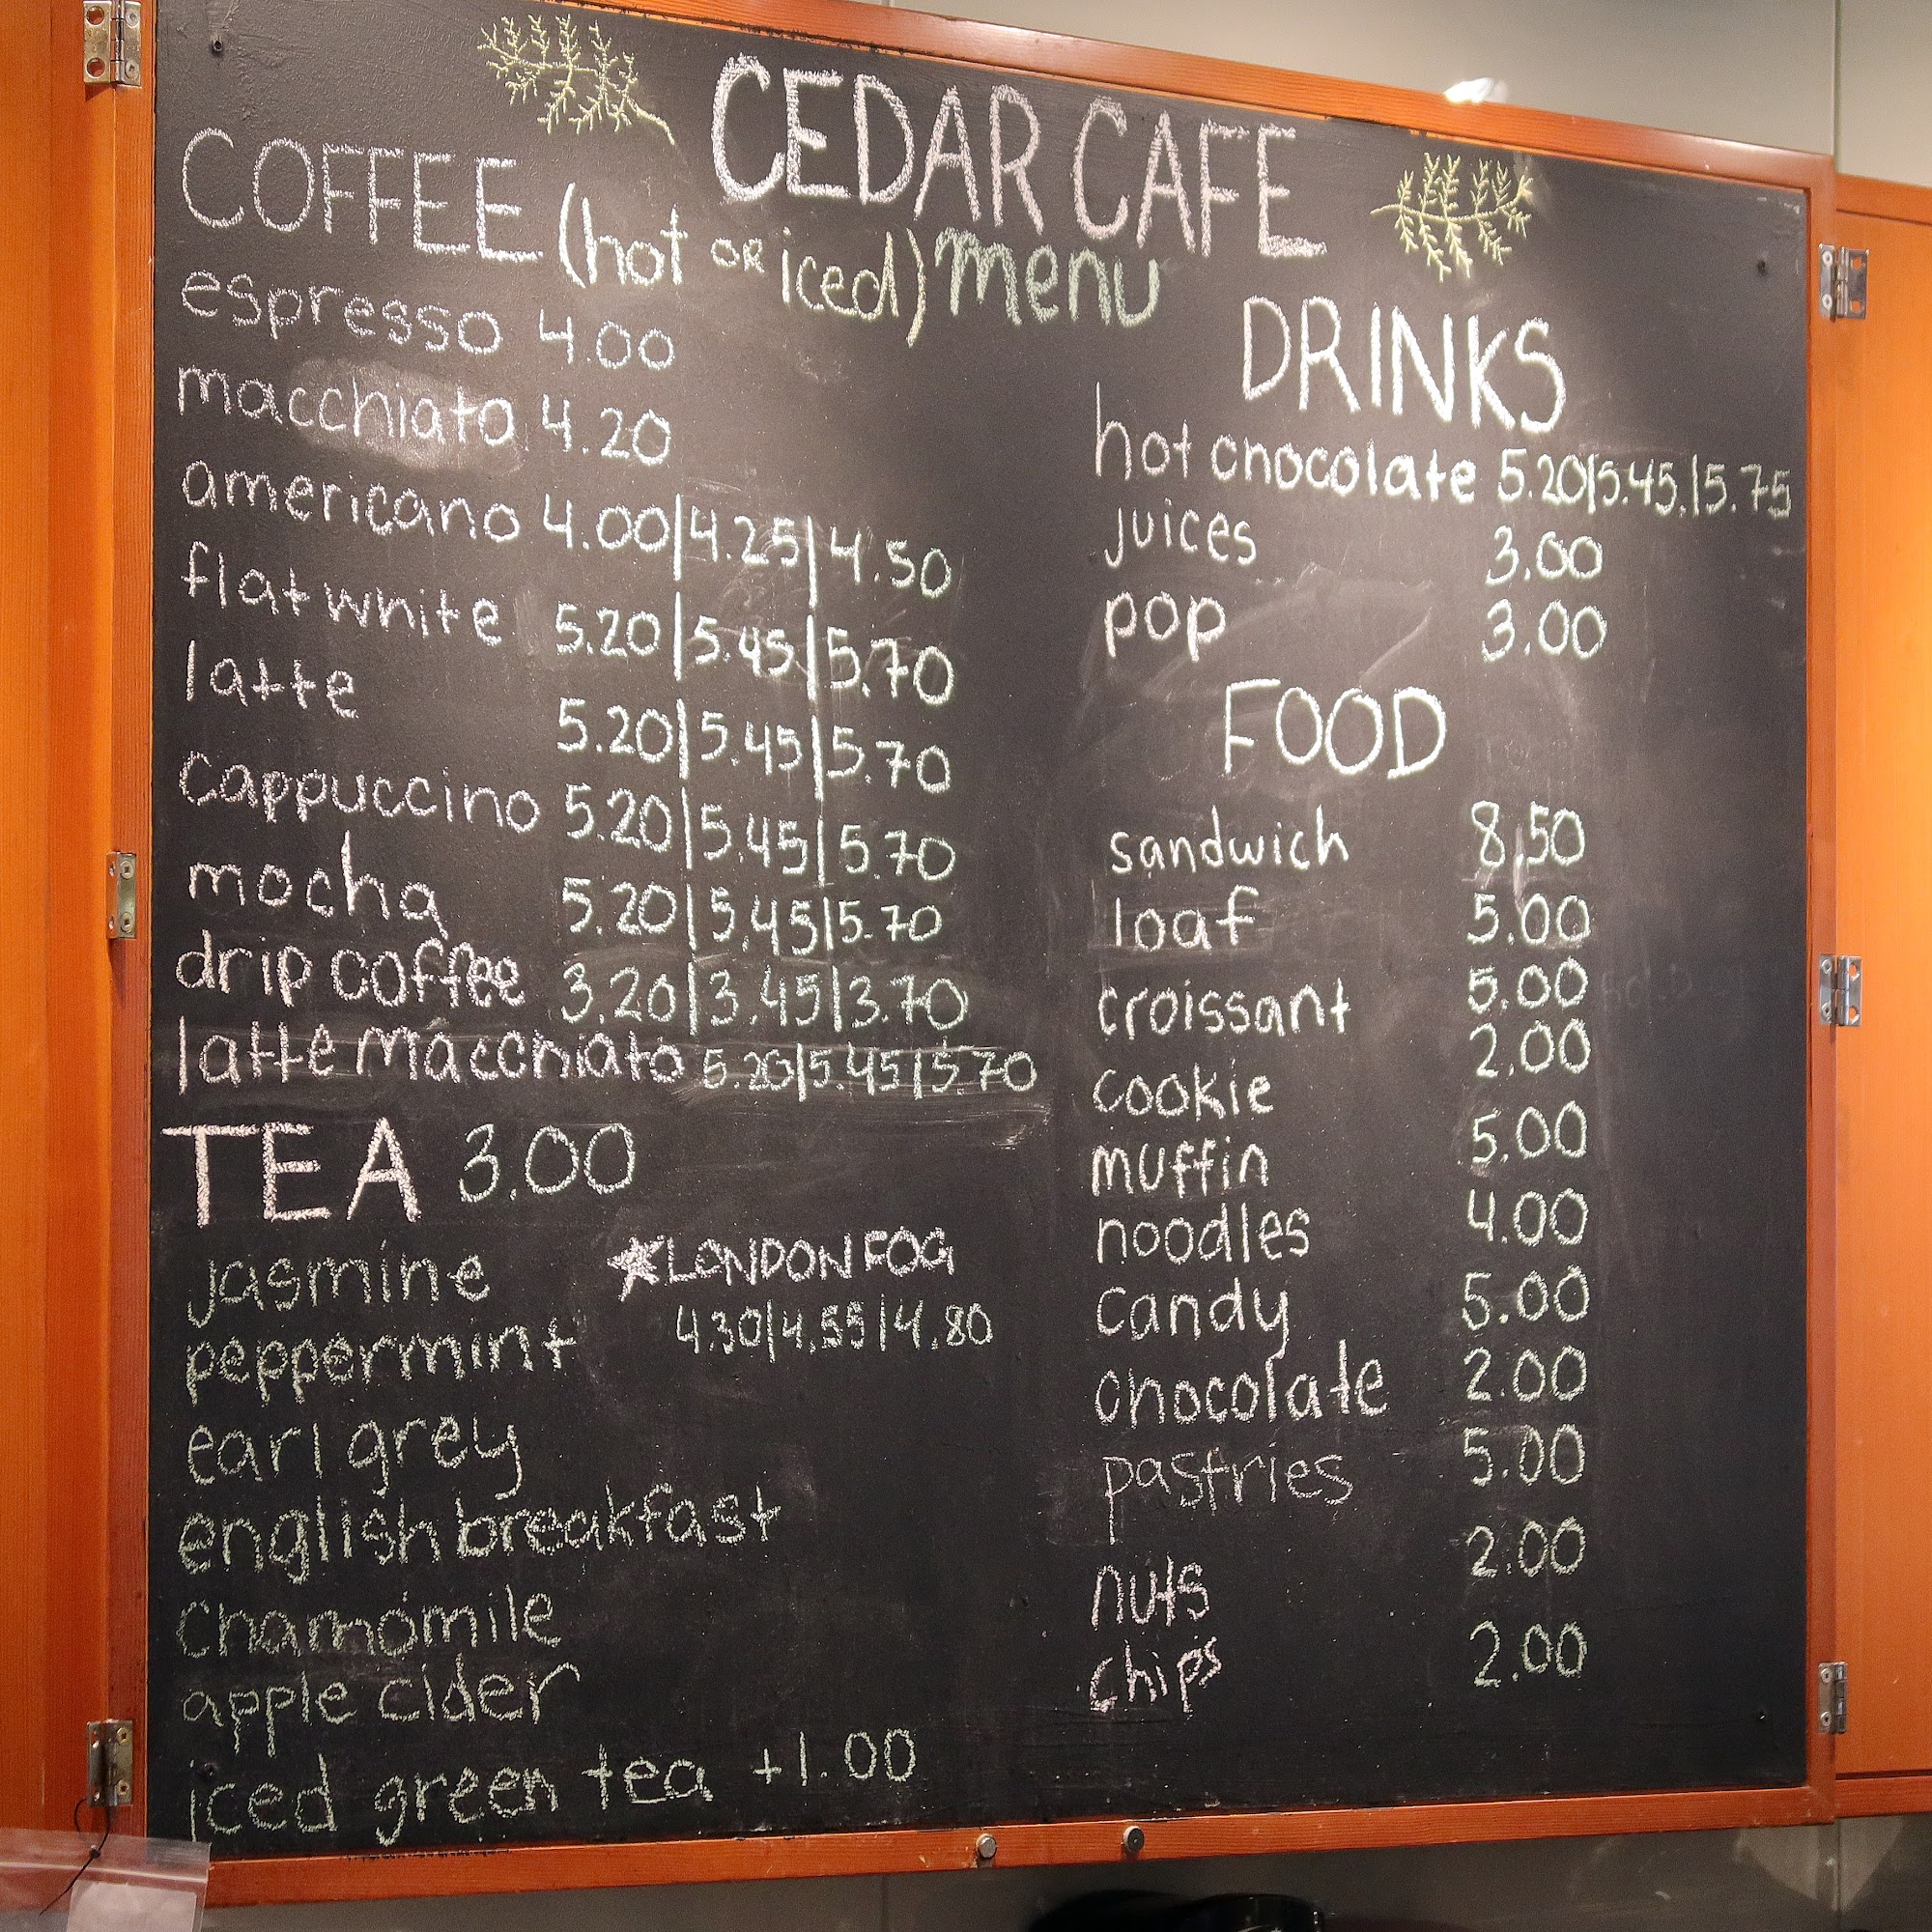 CEDAR CAFE
menu
COFFEE (hot OR iced)
espresso 4.00
macchiato 4.20
americano 4.00|4.25|4.50
flat white 5.20|5.45|5.70
latte 5.20|5.45|5.70
cappuccino 5.20|5.45|5.70
mocha 5.20|5.45|5.70
drip coffee 3.20|3.45|3.70
latte macchiato 5.20|5.45|5.70
TEA 3.00
jasmine
peppermint
earl grey
english breakfast
chamomile
apple cider
iced green tea +1.00
LONDON FOG
4.30|4.55|4.80
DRINKS
hot chocolate 5.20|5.45.|5.75
juices 3.00
pop 3.00
FOOD
sandwich 8.50
loaf 5.00
croissant 5.00
cookie 2.00
muffin 5.00
noodles 4.00
candy 5.00
chocolate 2.00
pastries 5.00
nuts 2.00
chips 2.00